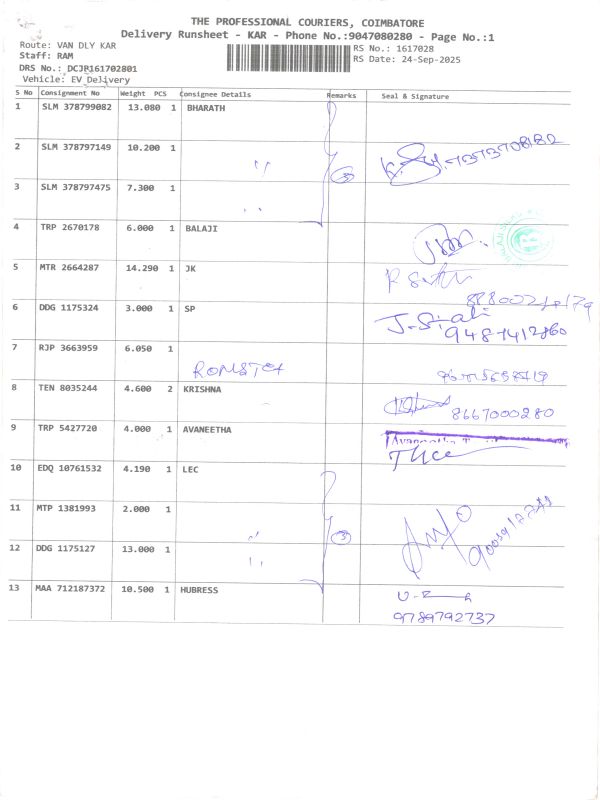 THE PROFESSIONAL COURIERS, COIMBATORE
Delivery Runsheet - KAR - Phone No.:9047080280 - Page No.:1
Route: VAN DLY KAR
RS No.: 1617028
Staff: RAM
RS Date: 24-Sep-2025
DRS No.: DCJP161702801
Vehicle: EV Delivery
S No Consignment No Weight PCS Consignee Details Remarks Seal & Signature
1 SLM 378799082 13.080 1 BHARATH
2 SLM 378797149 10.200 1 " 3
3 SLM 378797475 7.300 1 "
4 TRP 2670178 6.000 1 BALAJI
5 MTR 2664287 14.290 1 JK
6 DDG 1175324 3.000 1 SP
9487412860
7 RJP 3663959 6.050 1
8 TEN 8035244 4.600 2 KRISHNA 8667000280
9 TRP 5427720 4.000 1 AVANEETHA
10 EDQ 10761532 4.190 1 LEC
11 MTP 1381993 2.000 1 " 3
12 DDG 1175127 13.000 1 "
13 MAA 712187372 10.500 1 HUBRESS
9789792737